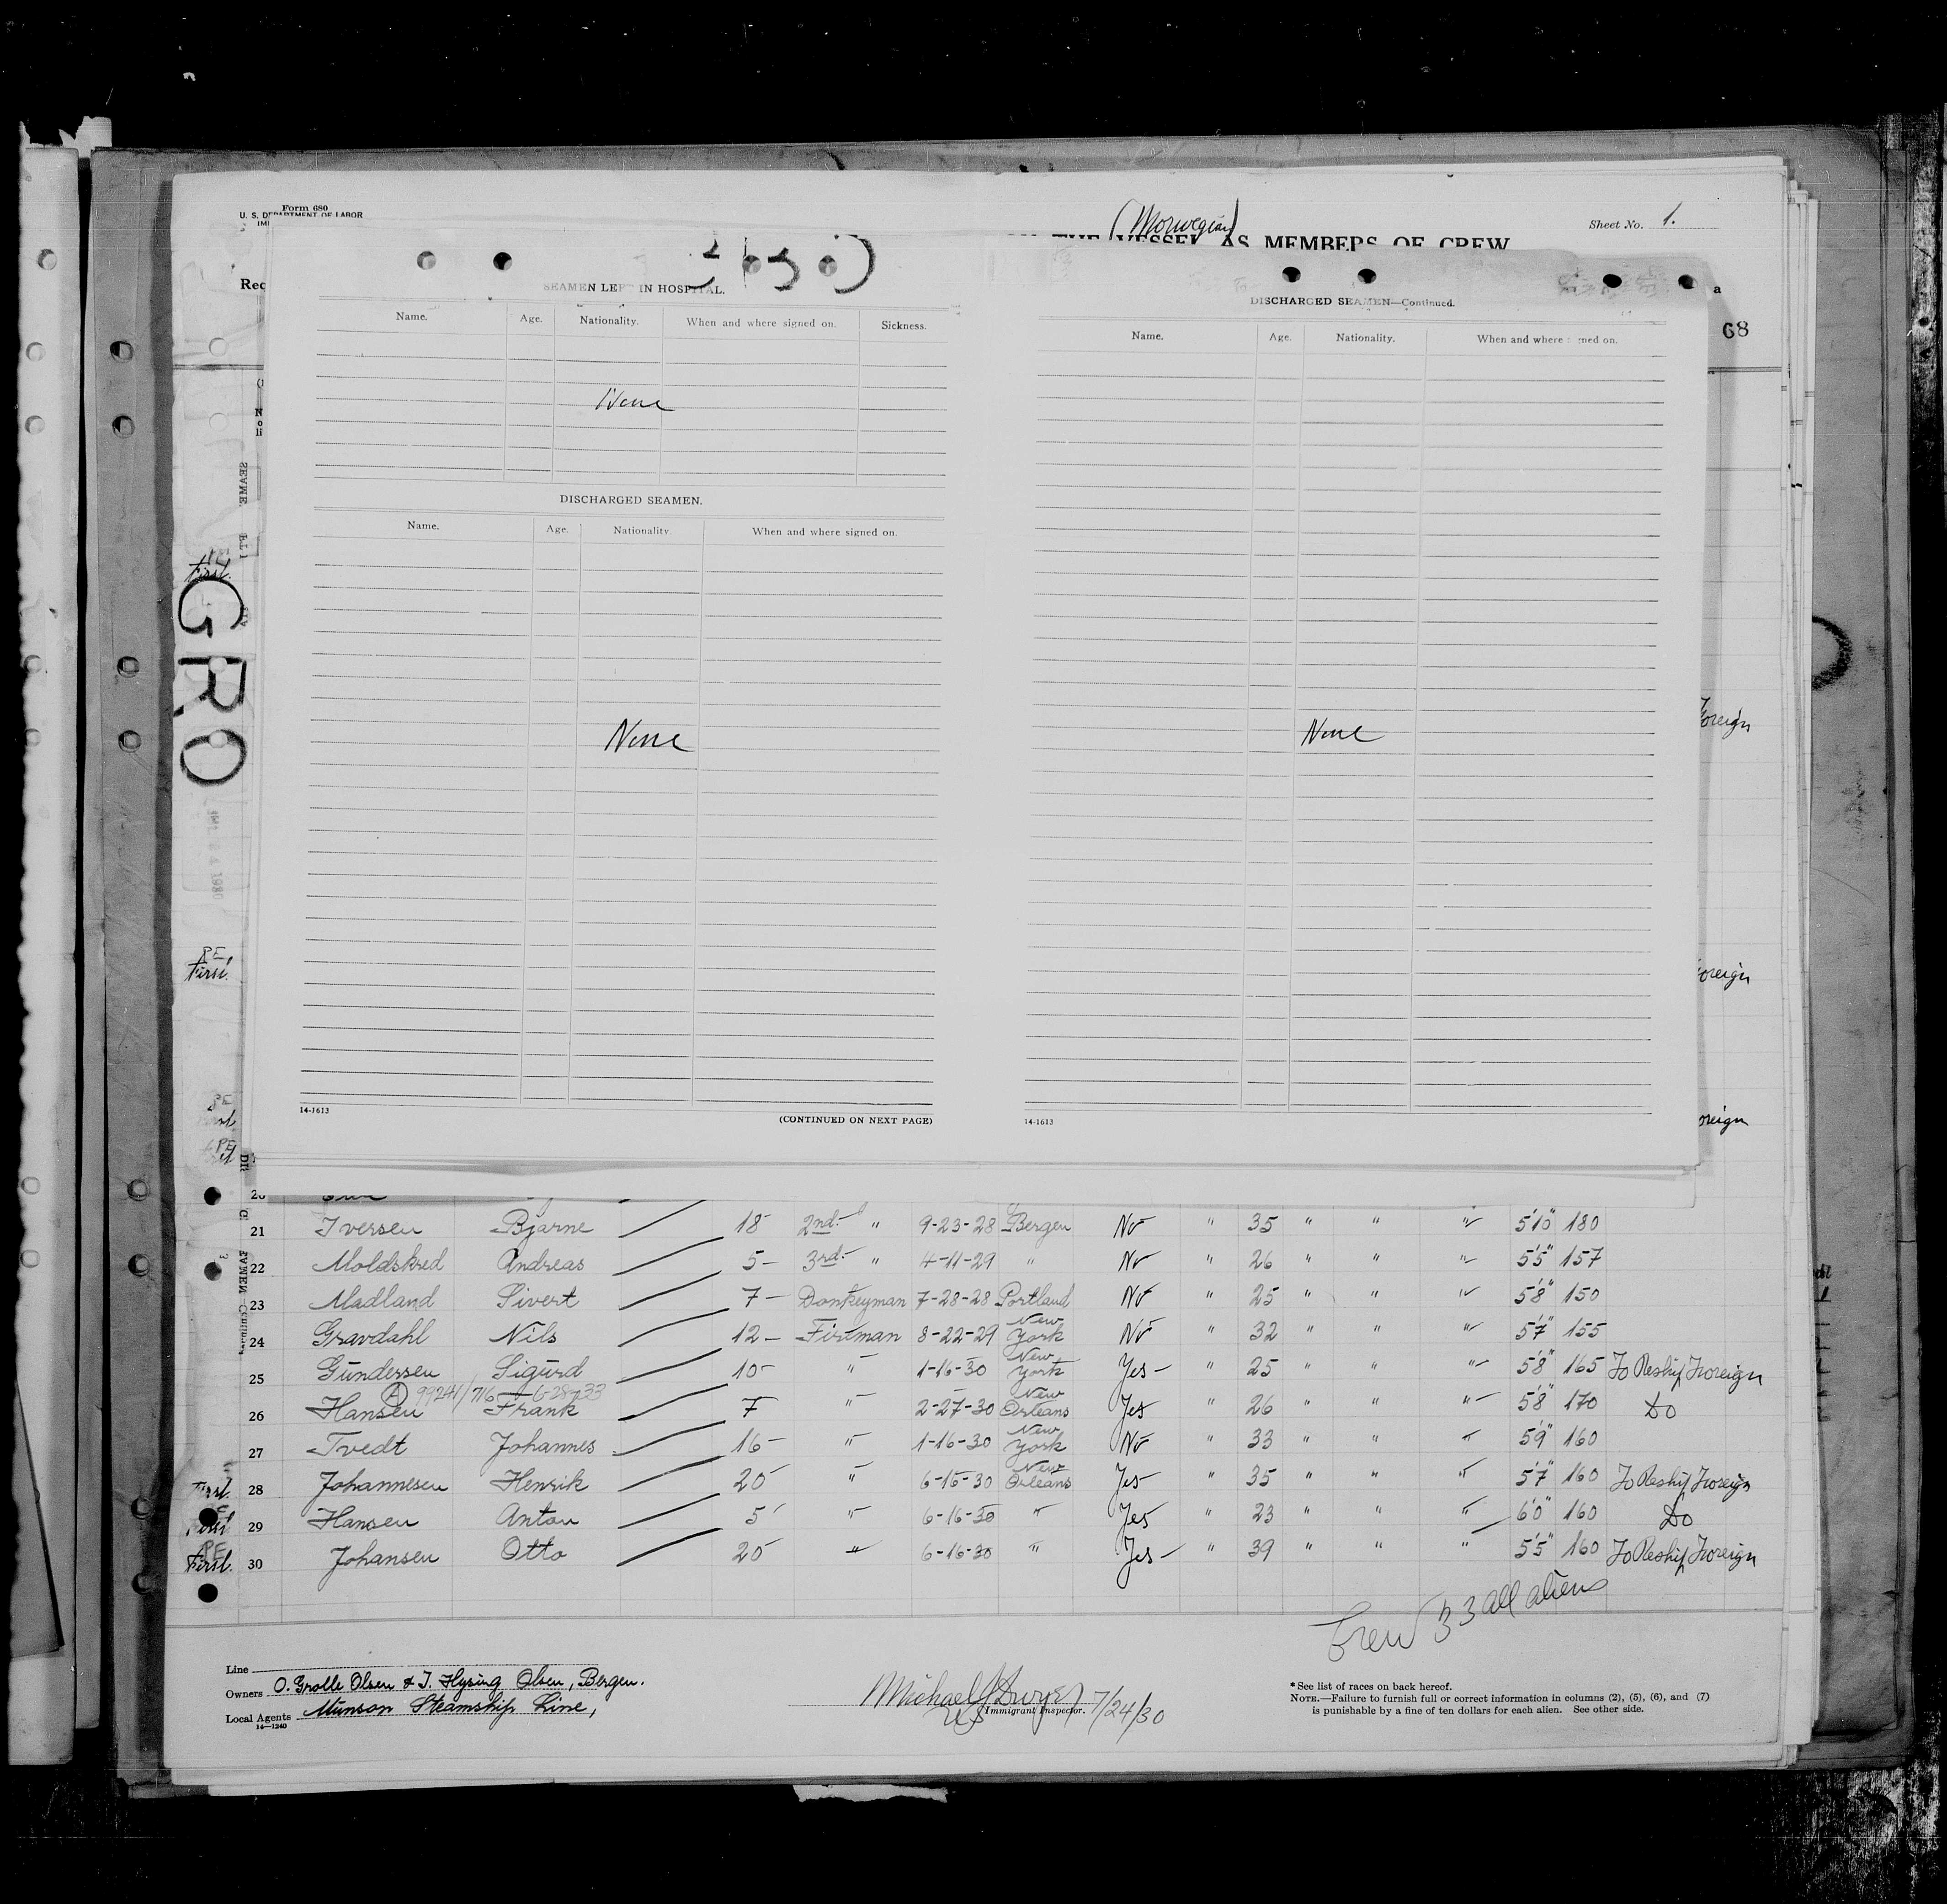 Form 680
U. S. DEPARTMENT OF LABOR
(Norwegian)
VESSEL AS MEMBERS OF CREW
Sheet No. 1.
Req
a
68
SEAMEN LEF IN HOSPITAL.
Name. Age. Nationality. When and where signed on. Sickness.
None
DISCHARGED SEAMEN.
Name. Age. Nationality. When and where signed on.
None
14-1613 (CONTINUED ON NEXT PAGE)
DISCHARGED SEAMEN—Continued.
Name. Age. Nationality. When and where ned on.
None
14-1613
First.
GRO
PE
First.
PE
PE
Foreign
oreign
oreign
21 Iversen Bjarne 18 2nd. " 9-23-28 Bergen No " 35 " " " 5'10" 180
22 Moldskred Andreas 5 - 3rd. " 4-11-29 " No " 26 " " " 5'5" 157
23 Madland Sivert 7 - Donkeyman 7-28-28 Portland No " 25 " " " 5'8" 150
24 Gravdahl Nils 12 - Firman 8-22-29 New York No " 32 " " " 5'7" 155
25 Gundersen Sigurd 10 " 1-16-30 New York Yes - " 25 " " " 5'8" 165 To Reship Foreign
26 Hansen Frank 7 " 2-27-30 New Orleans Yes " 26 " " " 5'8" 170 Do
27 Tvedt Johannes 16 - " 1-16-30 New York No " 33 " " " 5'9" 160
First. 28 Johannesen Henrik 20 " 6-15-30 New Orleans Yes " 35 " " " 5'7" 160 To Reship Foreign
First 29 Hansen Anton 5 " 6-16-30 " Yes " 23 " " " 6'0" 160 Do
PE
First. 30 Johansen Otto 20 " 6-16-30 " Yes - " 39 " " " 5'5" 160 To Reship Foreign
Crew 33 all aliens
Line
Owners O. Grolle Olsen & I. Hysing Olsen, Bergen.
Local Agents Munson Steamship Line,
14—1240
Michael J Dwyer 7/24/30
US Immigrant Inspector.
*See list of races on back hereof.
NOTE.—Failure to furnish full or correct information in columns (2), (5), (6), and (7)
is punishable by a fine of ten dollars for each alien. See other side.